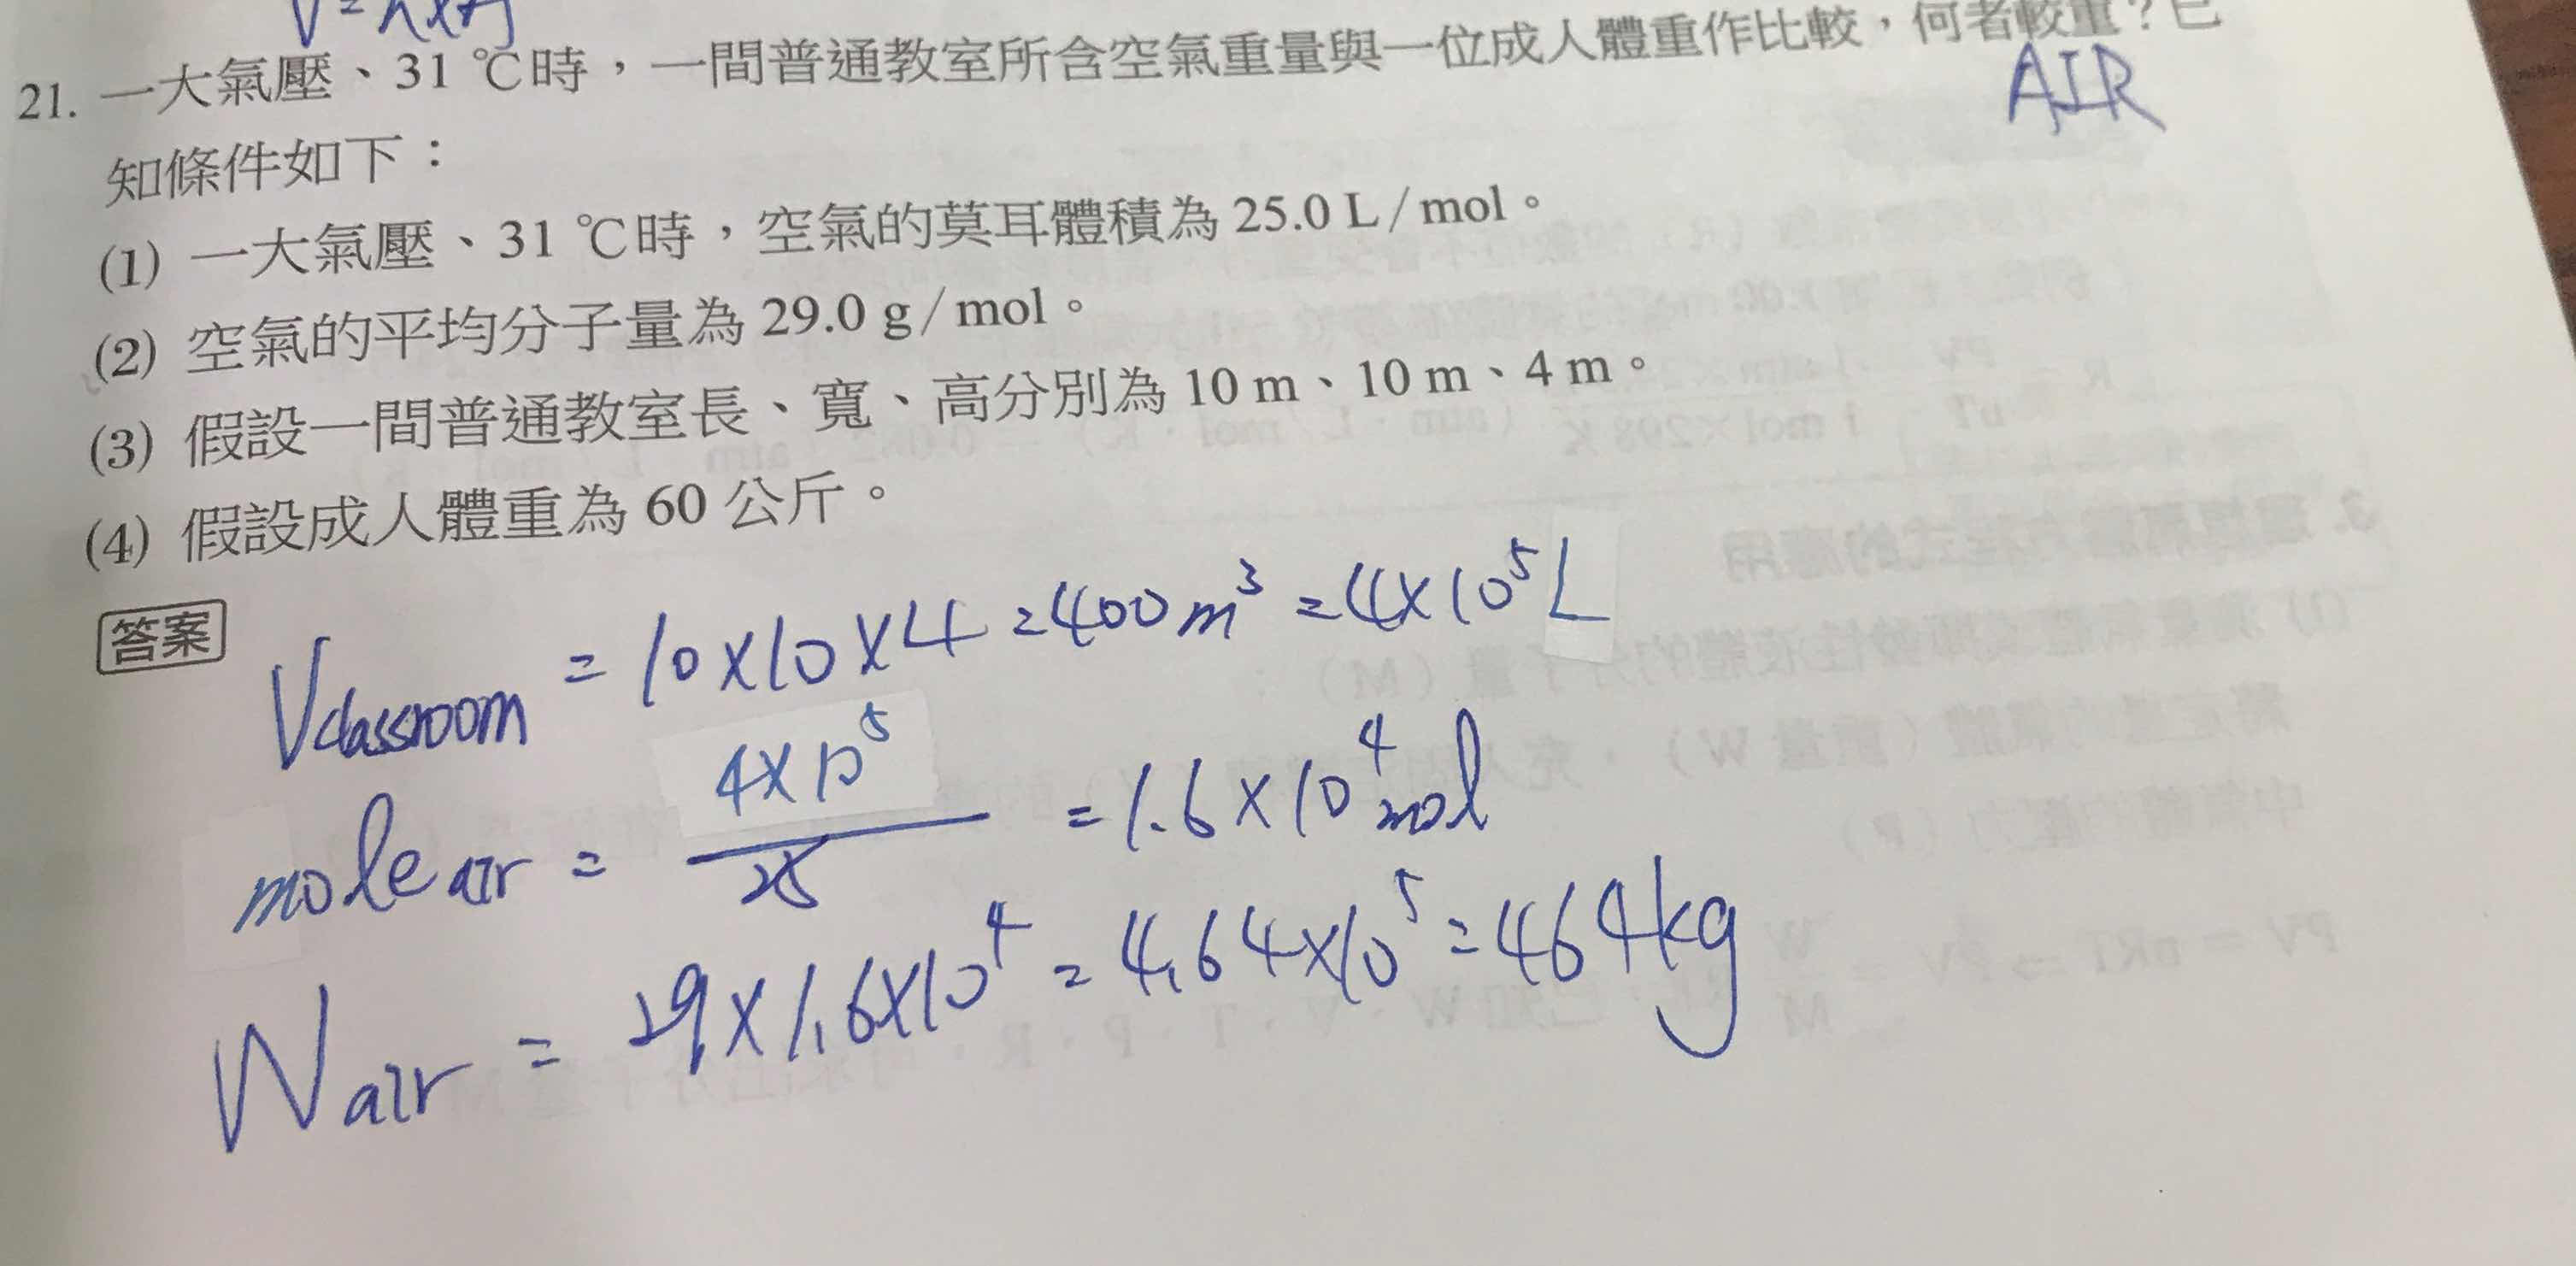 21. 一大氣壓、31 ℃時，一間普通教室所含空氣重量與一位成人體重作比較，何者較重？已
AIR
知條件如下：
(1) 一大氣壓、31 ℃時，空氣的莫耳體積為 25.0 L/mol。
(2) 空氣的平均分子量為 29.0 g/mol。
(3) 假設一間普通教室長、寬、高分別為 10 m、10 m、4 m。
(4) 假設成人體重為 60 公斤。
答案
Vclassroom = 10×10×4 = 400 m³ = 4×10⁵ L
mole air = 4×10⁵ / 25 = 1.6×10⁴ mol
W air = 29×1.6×10⁴ = 4.64×10⁵ = 464 kg